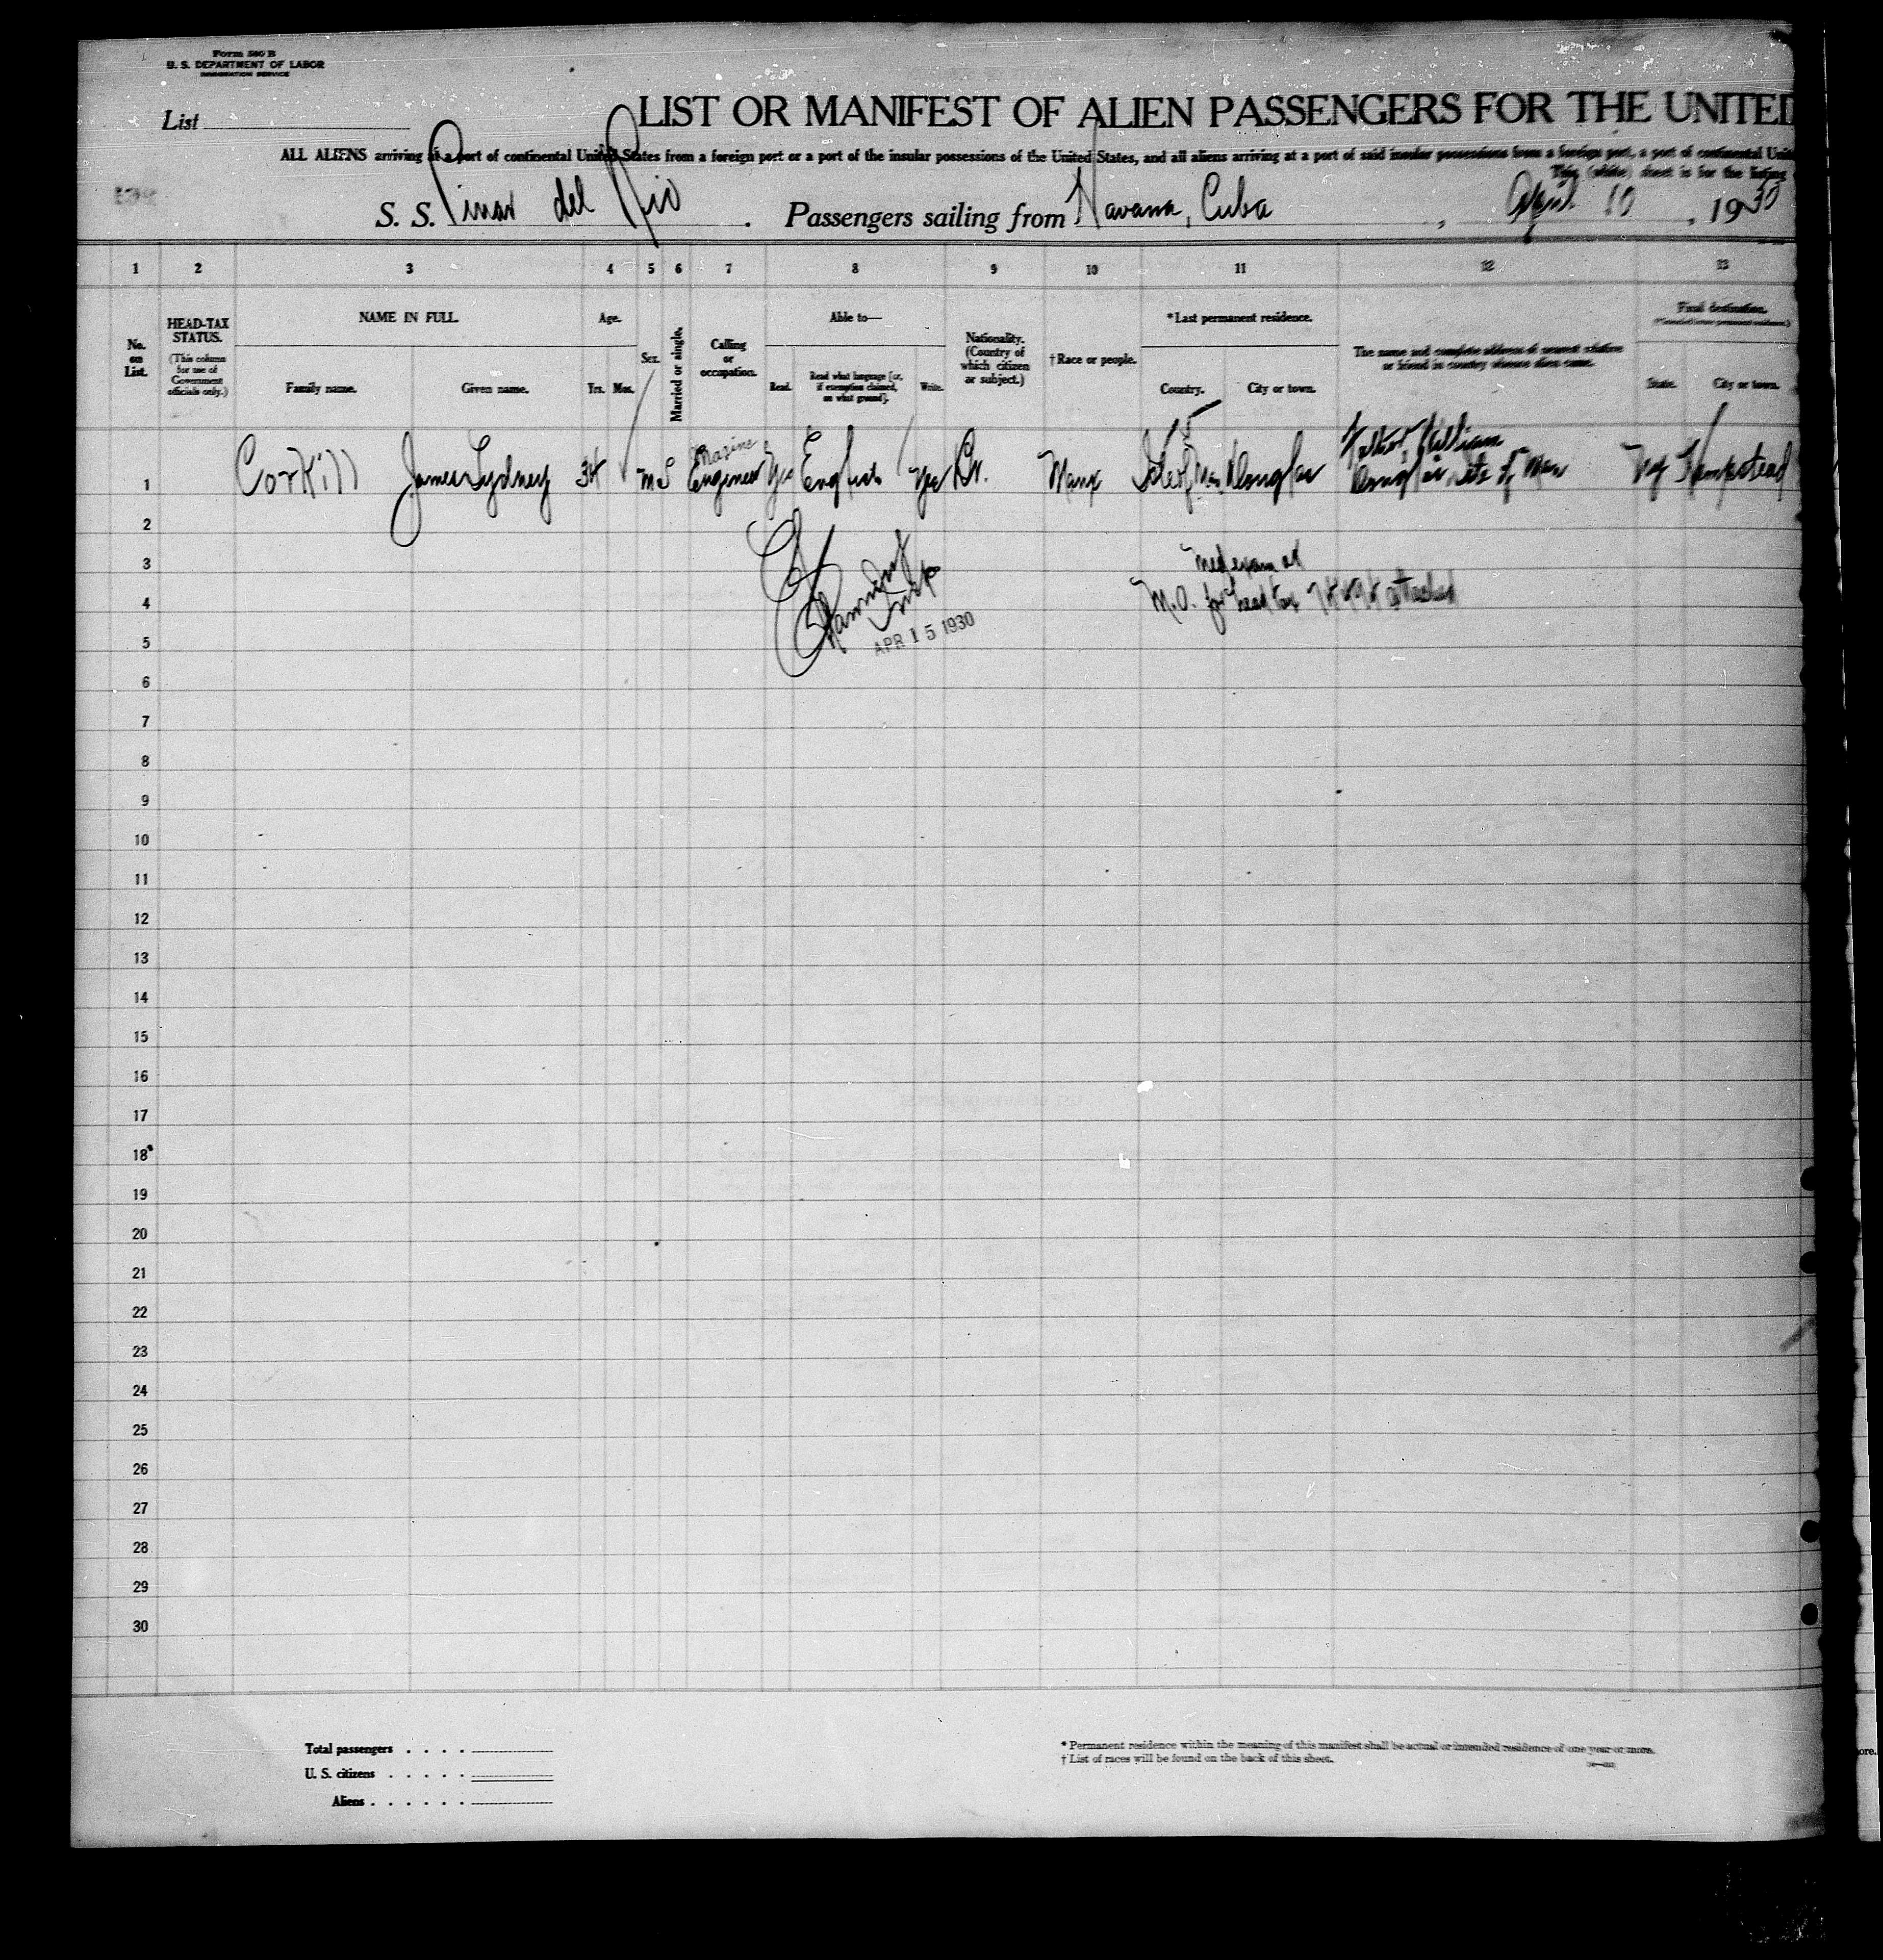 Form 560 B
U. S. DEPARTMENT OF LABOR
IMMIGRATION SERVICE
List
LIST OR MANIFEST OF ALIEN PASSENGERS FOR THE UNITED
ALL ALIENS arriving at a port of continental United States from a foreign port or a port of the insular possessions of the United States, and all aliens arriving at a port of said insular possessions from a foreign port, a port of continental Unit
This (white) sheet is for the listing
S. S. Pinar del Rio. Passengers sailing from Havana, Cuba, April 10, 1930
1 2 3 4 5 6 7 8 9 10 11 12 13
No. on List.
HEAD-TAX STATUS.
(This column for use of Government officials only.)
NAME IN FULL.
Family name. Given name.
Age.
Yrs. Mos.
Sex.
Married or single.
Calling or occupation.
Able to—
Read. Read what language [or, if exemption claimed, on what ground]. Write.
Nationality. (Country of which citizen or subject.)
†Race or people.
*Last permanent residence.
Country. City or town.
The name and complete address of nearest relative or friend in country whence alien came.
Final destination.
State. City or town.
1 Corkill James Sydney 34 M S Marine Engineer Yes English Yes Br. Manx Isle of Man Douglas Father, William Douglas Isle of Man NY Hempstead
2
3
Med exam at
4
M.O. for head tax attached
5
APR 15 1930
6
7
8
9
10
11
12
13
14
15
16
17
18
19
20
21
22
23
24
25
26
27
28
29
30
Total passengers . . . .
U. S. citizens . . . . .
Aliens . . . . . .
* Permanent residence within the meaning of this manifest shall be actual or intended residence of one year or more.
† List of races will be found on the back of this sheet.
ore.